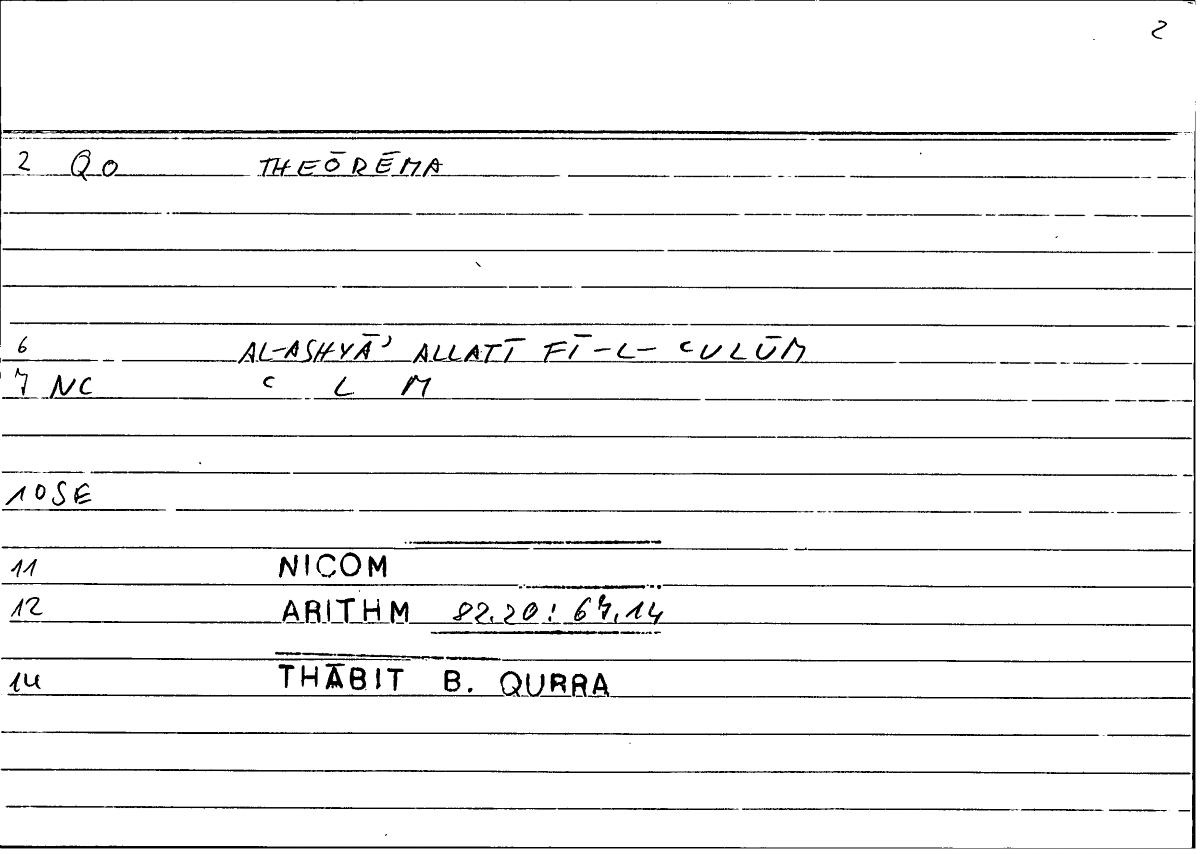 2
2 QO THEŌRĒMA
6 AL-ASHYĀʾ ALLATĪ FĪ-L-ʿULŪM
7 NC ʿ L M
10 SE
11 NICOM
12 ARITHM 82.20 : 67.14
14 THĀBIT B. QURRA